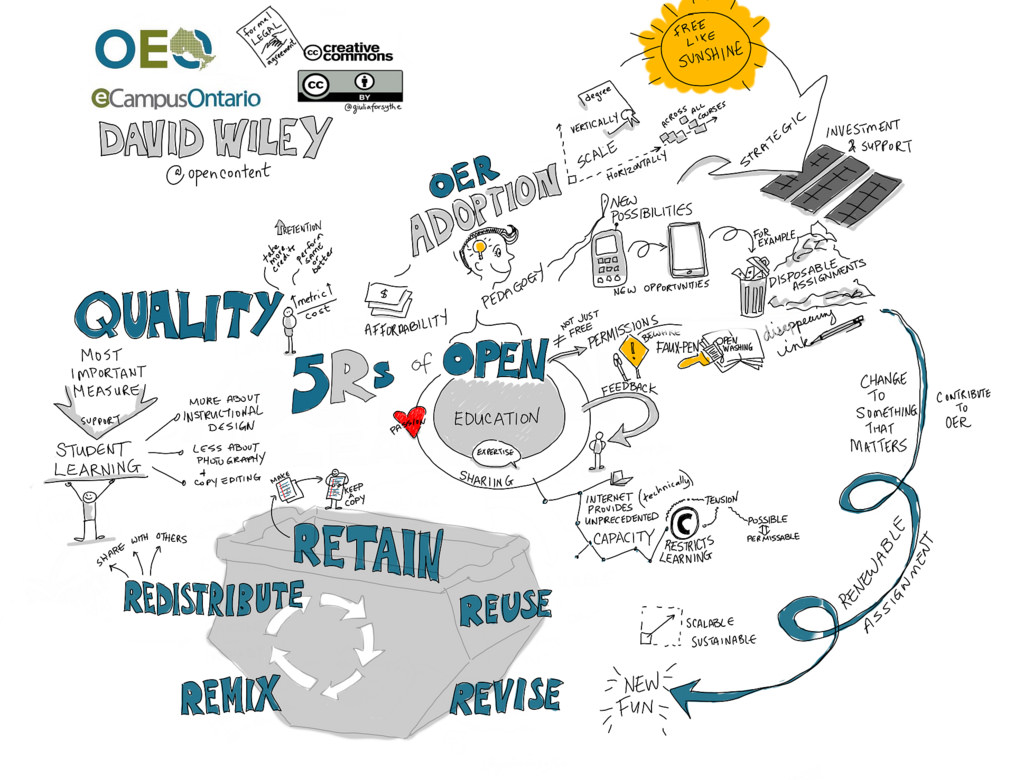 OEO
eCampusOntario
formal
LEGAL
agreement
cc creative
commons
cc
BY
@giuliaforsythe
DAVID WILEY
@opencontent
FREE
LIKE
SUNSHINE
STRATEGIC
INVESTMENT
& SUPPORT
degree
VERTICALLY
SCALE
HORIZONTALLY
ACROSS ALL
COURSES
OER
ADOPTION
PEDAGOGY
NEW
POSSIBILITIES
NEW OPPORTUNITIES
FOR
EXAMPLE
DISPOSABLE
ASSIGNMENTS
disappearing
ink
$
AFFORDABILITY
RETENTION
take
more
credits
perform
same
or
better
metric
cost
QUALITY
MOST
IMPORTANT
MEASURE
SUPPORT
STUDENT
LEARNING
MORE ABOUT
INSTRUCTIONAL
DESIGN
LESS ABOUT
PHOTOGRAPHY
+
COPY EDITING
5Rs of OPEN
≠ NOT JUST
FREE
PERMISSIONS
BEWARE
FAUX-PEN
OPEN
WASHING
EDUCATION
EXPERTISE
SHARIING
PASSION
FEEDBACK
INTERNET (technically)
PROVIDES
UNPRECEDENTED
CAPACITY
C
RESTRICTS
LEARNING
TENSION
POSSIBLE
PERMISSABLE
CHANGE
TO
SOMETHING
THAT
MATTERS
CONTRIBUTE
TO
OER
RENEWABLE
ASSIGNMENT
SCALABLE
SUSTAINABLE
NEW
FUN
MAKE
KEEP
A
COPY
RETAIN
SHARE WITH OTHERS
REDISTRIBUTE
REUSE
REMIX
REVISE